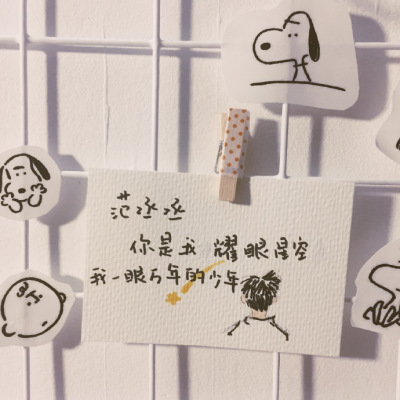 范丞丞
你是我耀眼星空
我一眼万年的少年